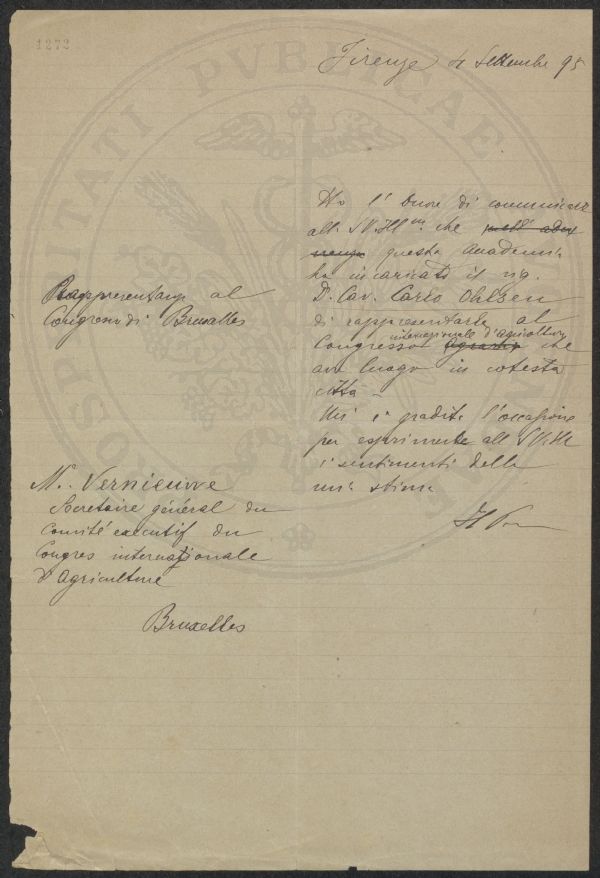 1272
PROSPERITATI PVBLICAE
Firenze 4 Settembre 95
Ho l'onore di comunicare
alla S.V.Ill.ma che
questa Accademia
ha incaricato il sig.
D. Cav. Carlo Ohlsen
di rappresentarla al
internazionale d'agricoltura
Congresso agrario che
avrà luogo in cotesta
città
Mi è gradita l'occasione
per esprimerle alla S.V.Ill
i sentimenti della
mia stima
Il
Rappresentanza al
Congresso di Bruxelles
M. Vernieuwe
Secretaire général du
Comité executif du
Congres internationale
d'Agriculture
Bruxelles